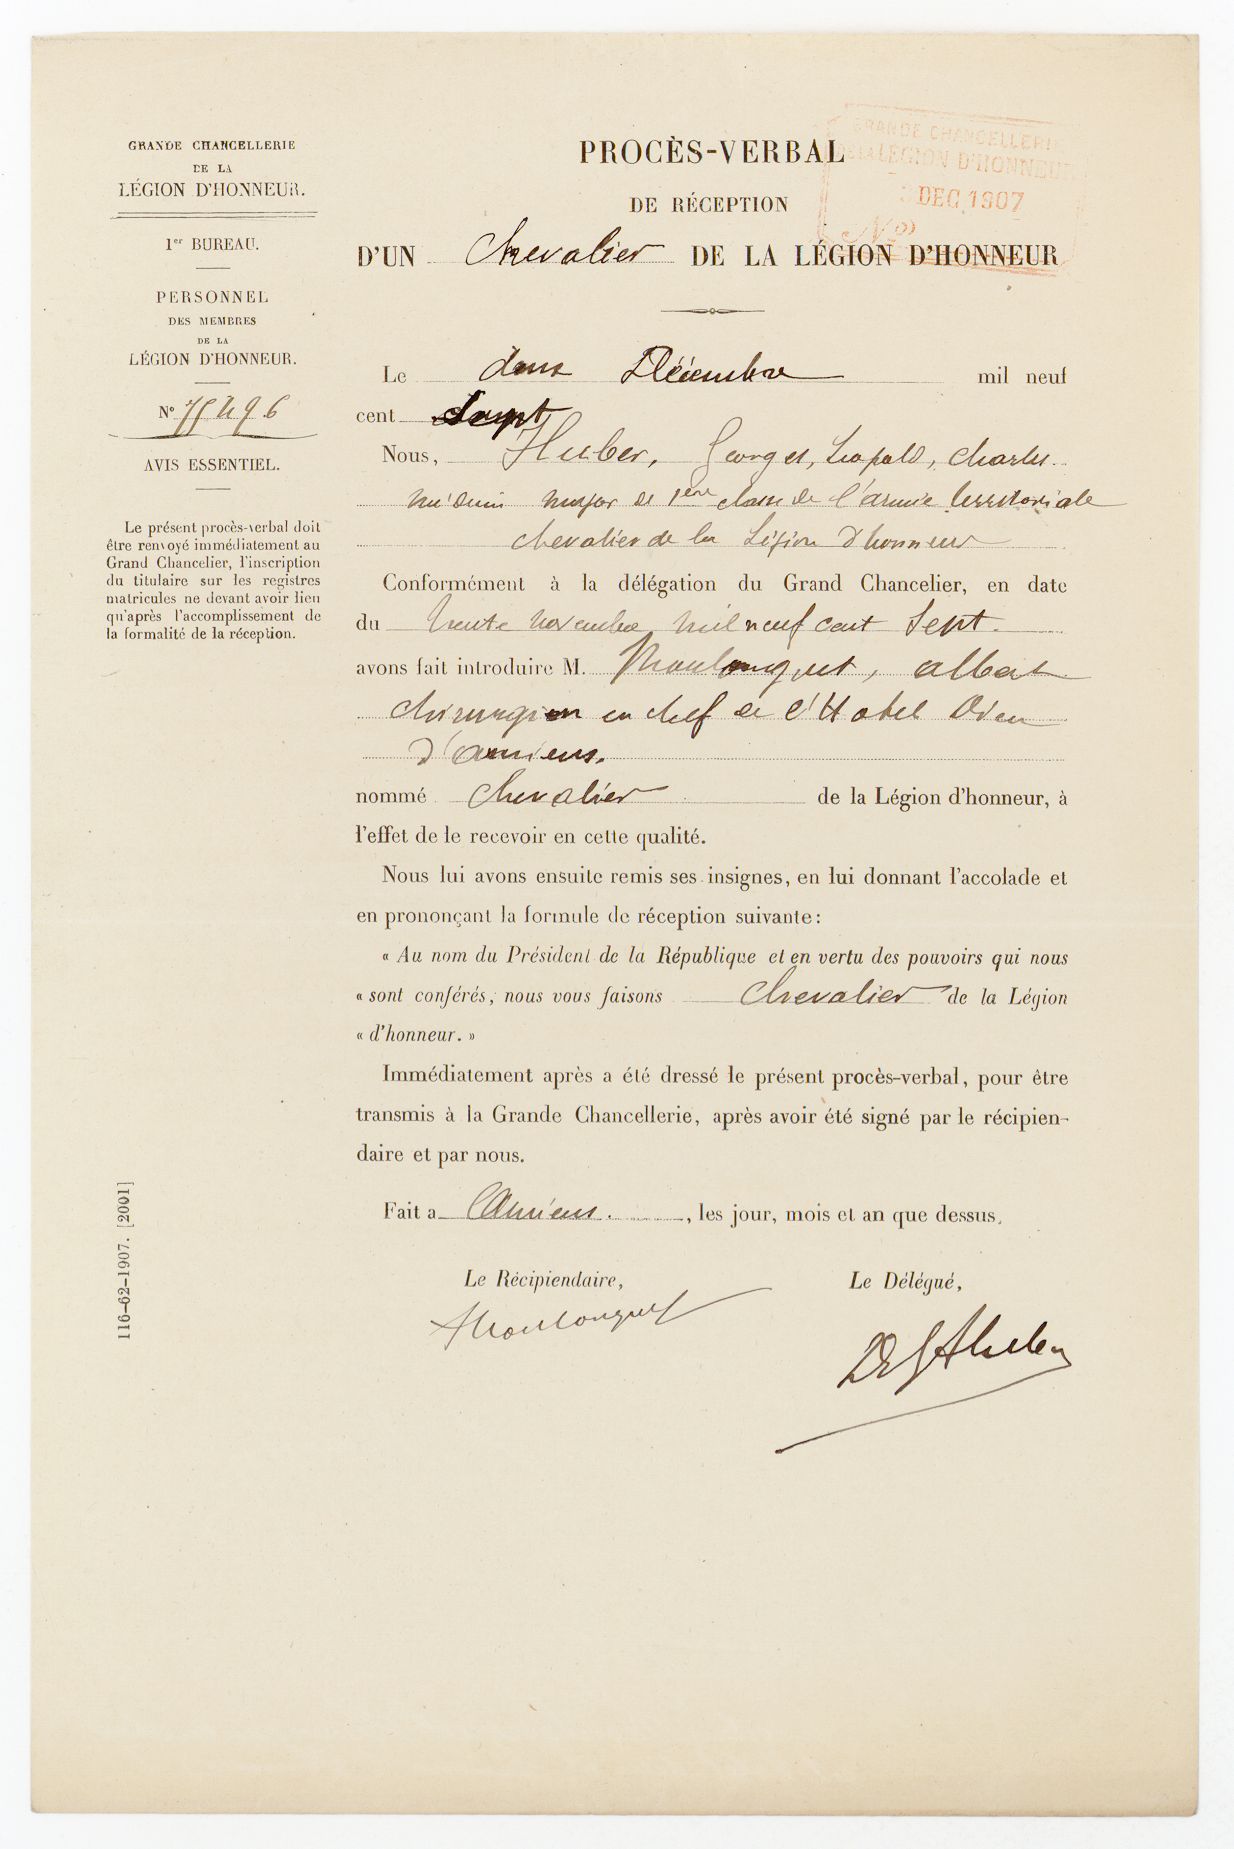 GRANDE CHANCELLERIE
DE LA
LÉGION D'HONNEUR.
1er BUREAU.
PERSONNEL
DES MEMBRES
DE LA
LÉGION D'HONNEUR.
N° 75496
AVIS ESSENTIEL.
Le présent procès-verbal doit
être renvoyé immédiatement au
Grand Chancelier, l'inscription
du titulaire sur les registres
matricules ne devant avoir lieu
qu'après l'accomplissement de
la formalité de la réception.
116-62-1907. [2001]
GRANDE CHANCELLERIE
DE LA LÉGION D'HONNEUR
DEC 1907
N°
PROCÈS-VERBAL
DE RÉCEPTION
D'UN Chevalier DE LA LÉGION D'HONNEUR
Le deux Décembre mil neuf
cent Sept
Nous, Huber, Georges, Léopold, Charles
médecin major de 1ère classe de l'armée territoriale
chevalier de la Légion d'honneur
Conformément à la délégation du Grand Chancelier, en date
du trente novembre mil neuf cent Sept
avons fait introduire M. Moulonguet, albert
chirurgien en chef de l'Hotel Dieu
d'amiens.
nommé Chevalier de la Légion d'honneur, à
l'effet de le recevoir en cette qualité.
Nous lui avons ensuite remis ses insignes, en lui donnant l'accolade et
en prononçant la formule de réception suivante:
« Au nom du Président de la République et en vertu des pouvoirs qui nous
« sont conférés, nous vous faisons Chevalier de la Légion
« d'honneur. »
Immédiatement après a été dressé le présent procès-verbal, pour être
transmis à la Grande Chancellerie, après avoir été signé par le récipien-
daire et par nous.
Fait a Amiens., les jour, mois et an que dessus.
Le Récipiendaire,
AMoulonguet
Le Délégué,
Dr G Huber